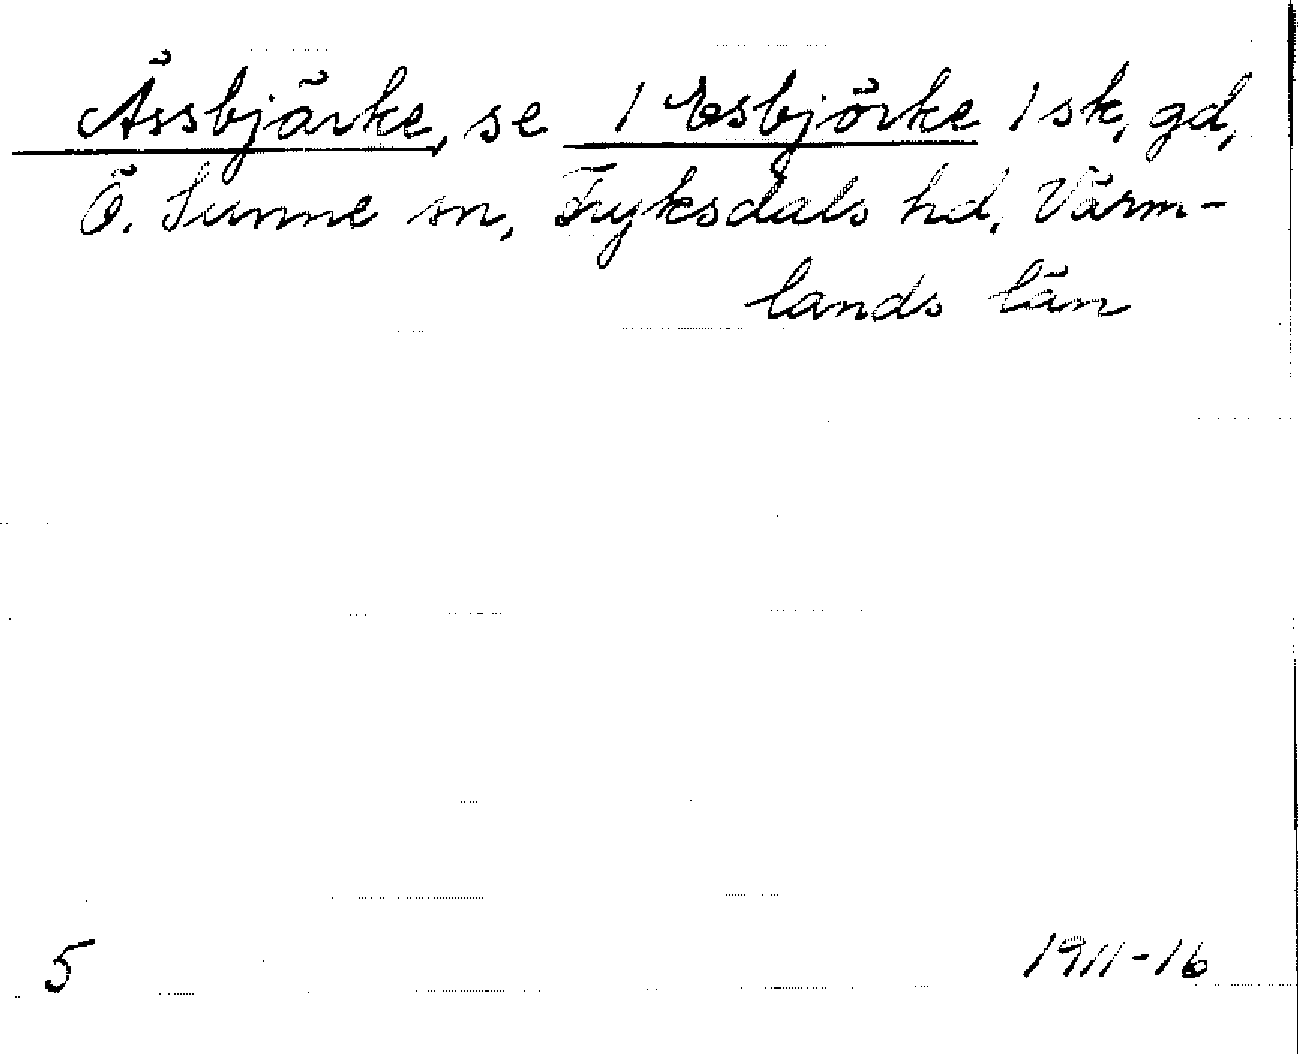 Ässbjärke, se 1 Esbjörke 1 sk, gd,
Ö. Sunne sn, Fryksdals hd, Värm-
lands län
5
1911-16